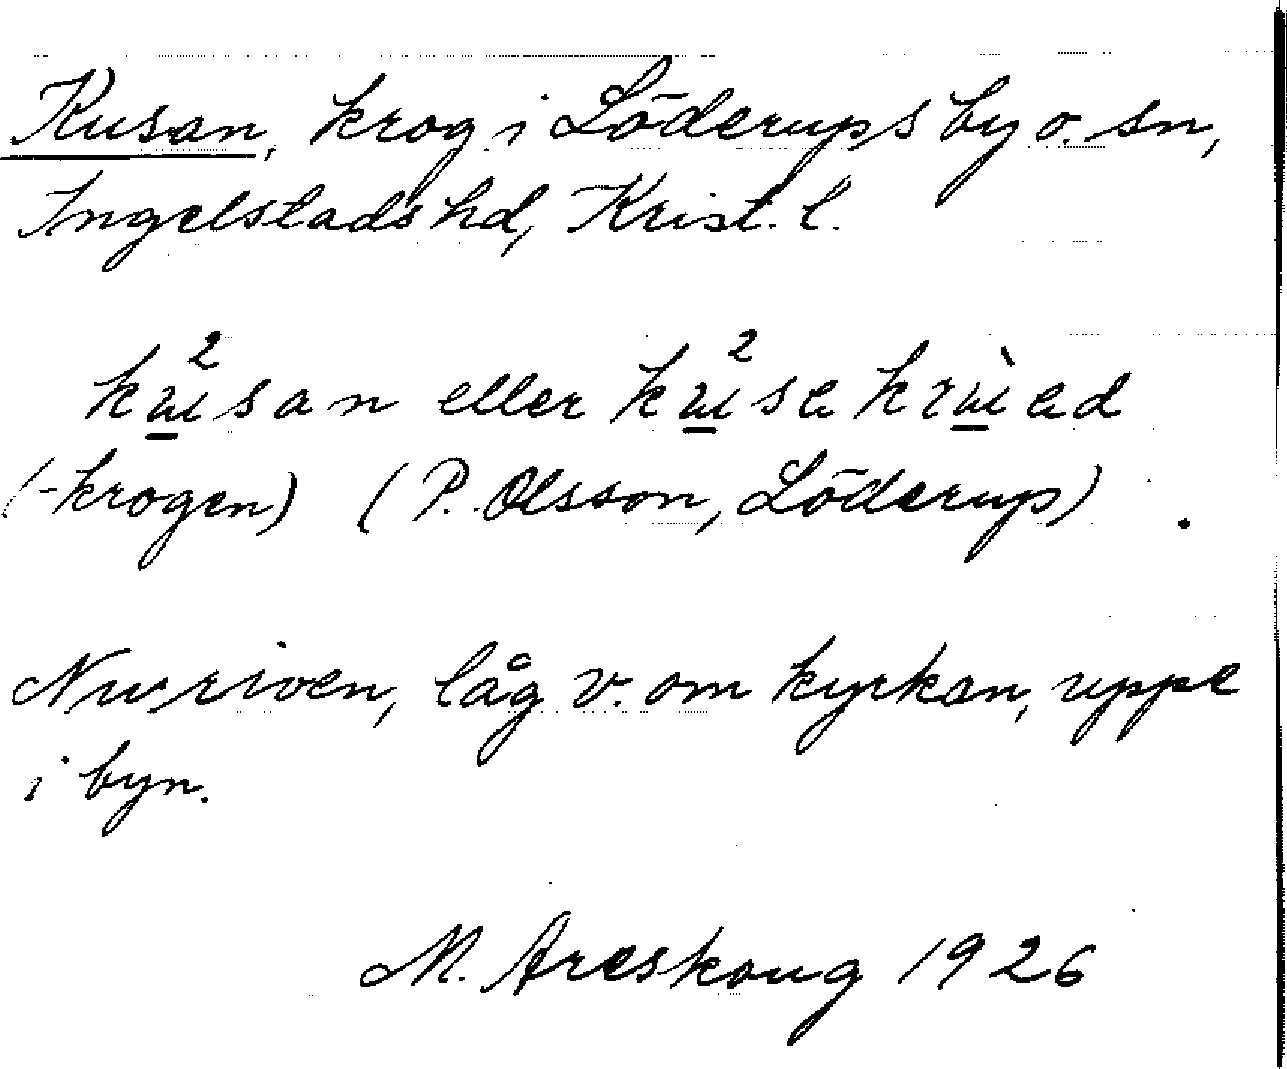 Kusan, krog i Löderups by o. sn,
Ingelstads hd, Krist. l.
eller
(-krogen) (P. Olsson, Löderup).
Nu riven, låg v. om kyrkan, uppe
i byn.
M. Areskoug 1926